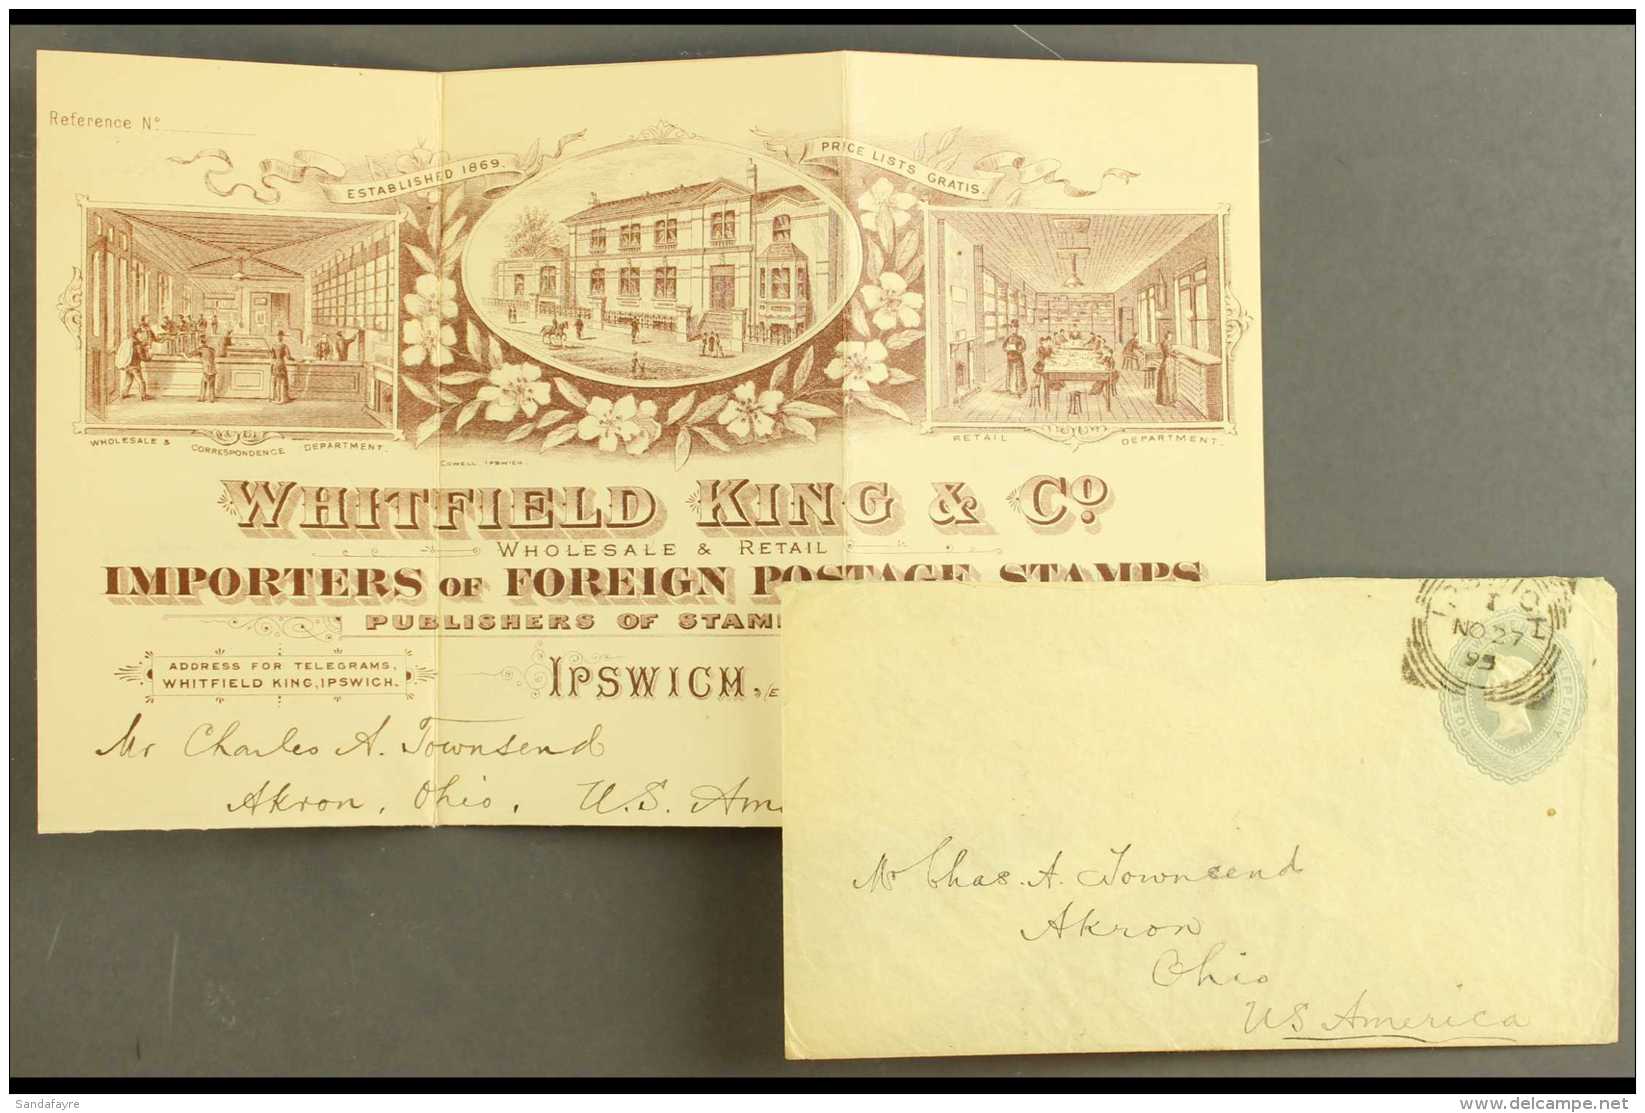 Reference No
ESTABLISHED 1869.
PRICE LISTS GRATIS.
WHOLESALE & CORRESPONDENCE DEPARTMENT.
RETAIL DEPARTMENT.
COWELL IPSWICH.
WHITFIELD KING & Co
WHOLESALE & RETAIL
IMPORTERS OF FOREIGN POSTAGE STAMPS
PUBLISHERS OF
ADDRESS FOR TELEGRAMS,
WHITFIELD KING, IPSWICH.
IPSWICH,
Mr Charles A. Townsend
Akron, Ohio, U.S.
NO 27
95
Mr Chas. A. Townsend
Akron
Ohio
US America
Sandafayre
delcampe.net